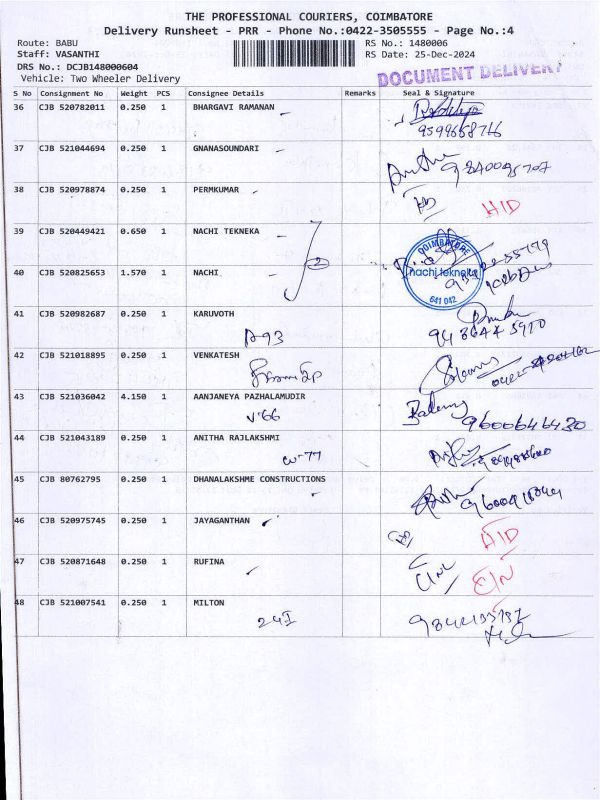 THE PROFESSIONAL COURIERS, COIMBATORE
Delivery Runsheet - PRR - Phone No.:0422-3505555 - Page No.:4
Route: BABU RS No.: 1480006
Staff: VASANTHI RS Date: 25-Dec-2024
DRS No.: DCJB148000604
Vehicle: Two Wheeler Delivery DOCUMENT DELIVERY
S No Consignment No Weight PCS Consignee Details Remarks Seal & Signature
36 CJB 520782011 0.250 1 BHARGAVI RAMANAN
37 CJB 521044694 0.250 1 GNANASOUNDARI
38 CJB 520978874 0.250 1 PERMKUMAR HID
39 CJB 520449421 0.650 1 NACHI TEKNEKA
COIMBATORE
nachi tekneka
641 042
40 CJB 520825653 1.570 1 NACHI
41 CJB 520982687 0.250 1 KARUVOTH
A-93
42 CJB 521018895 0.250 1 VENKATESH
43 CJB 521036042 4.150 1 AANJANEYA PAZHALAMUDIR
V'66 9600646430
44 CJB 521043189 0.250 1 ANITHA RAJLAKSHMI
W-77
45 CJB 80762795 0.250 1 DHANALAKSHME CONSTRUCTIONS
46 CJB 520975745 0.250 1 JAYAGANTHAN HID
47 CJB 520871648 0.250 1 RUFINA
48 CJB 521007541 0.250 1 MILTON
24I